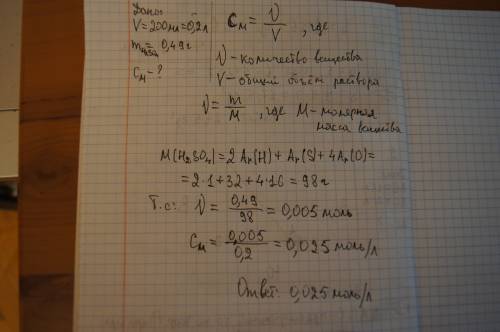 Дано:
V=200мл=0,2л
m H₂SO₄ = 0,49г
Cм - ?
Cм = ν/V, где
ν - количество вещества
V - общий объём раствора
ν = m/M, где M - молярная
масса вещества
M(H₂SO₄) = 2Ar(H) + Ar(S) + 4Ar(O) =
= 2·1+32+4·16 = 98 г
Т.о: ν = 0,49/98 = 0,005 моль
Cм = 0,005/0,2 = 0,025 моль/л
Ответ: 0,025 моль/л